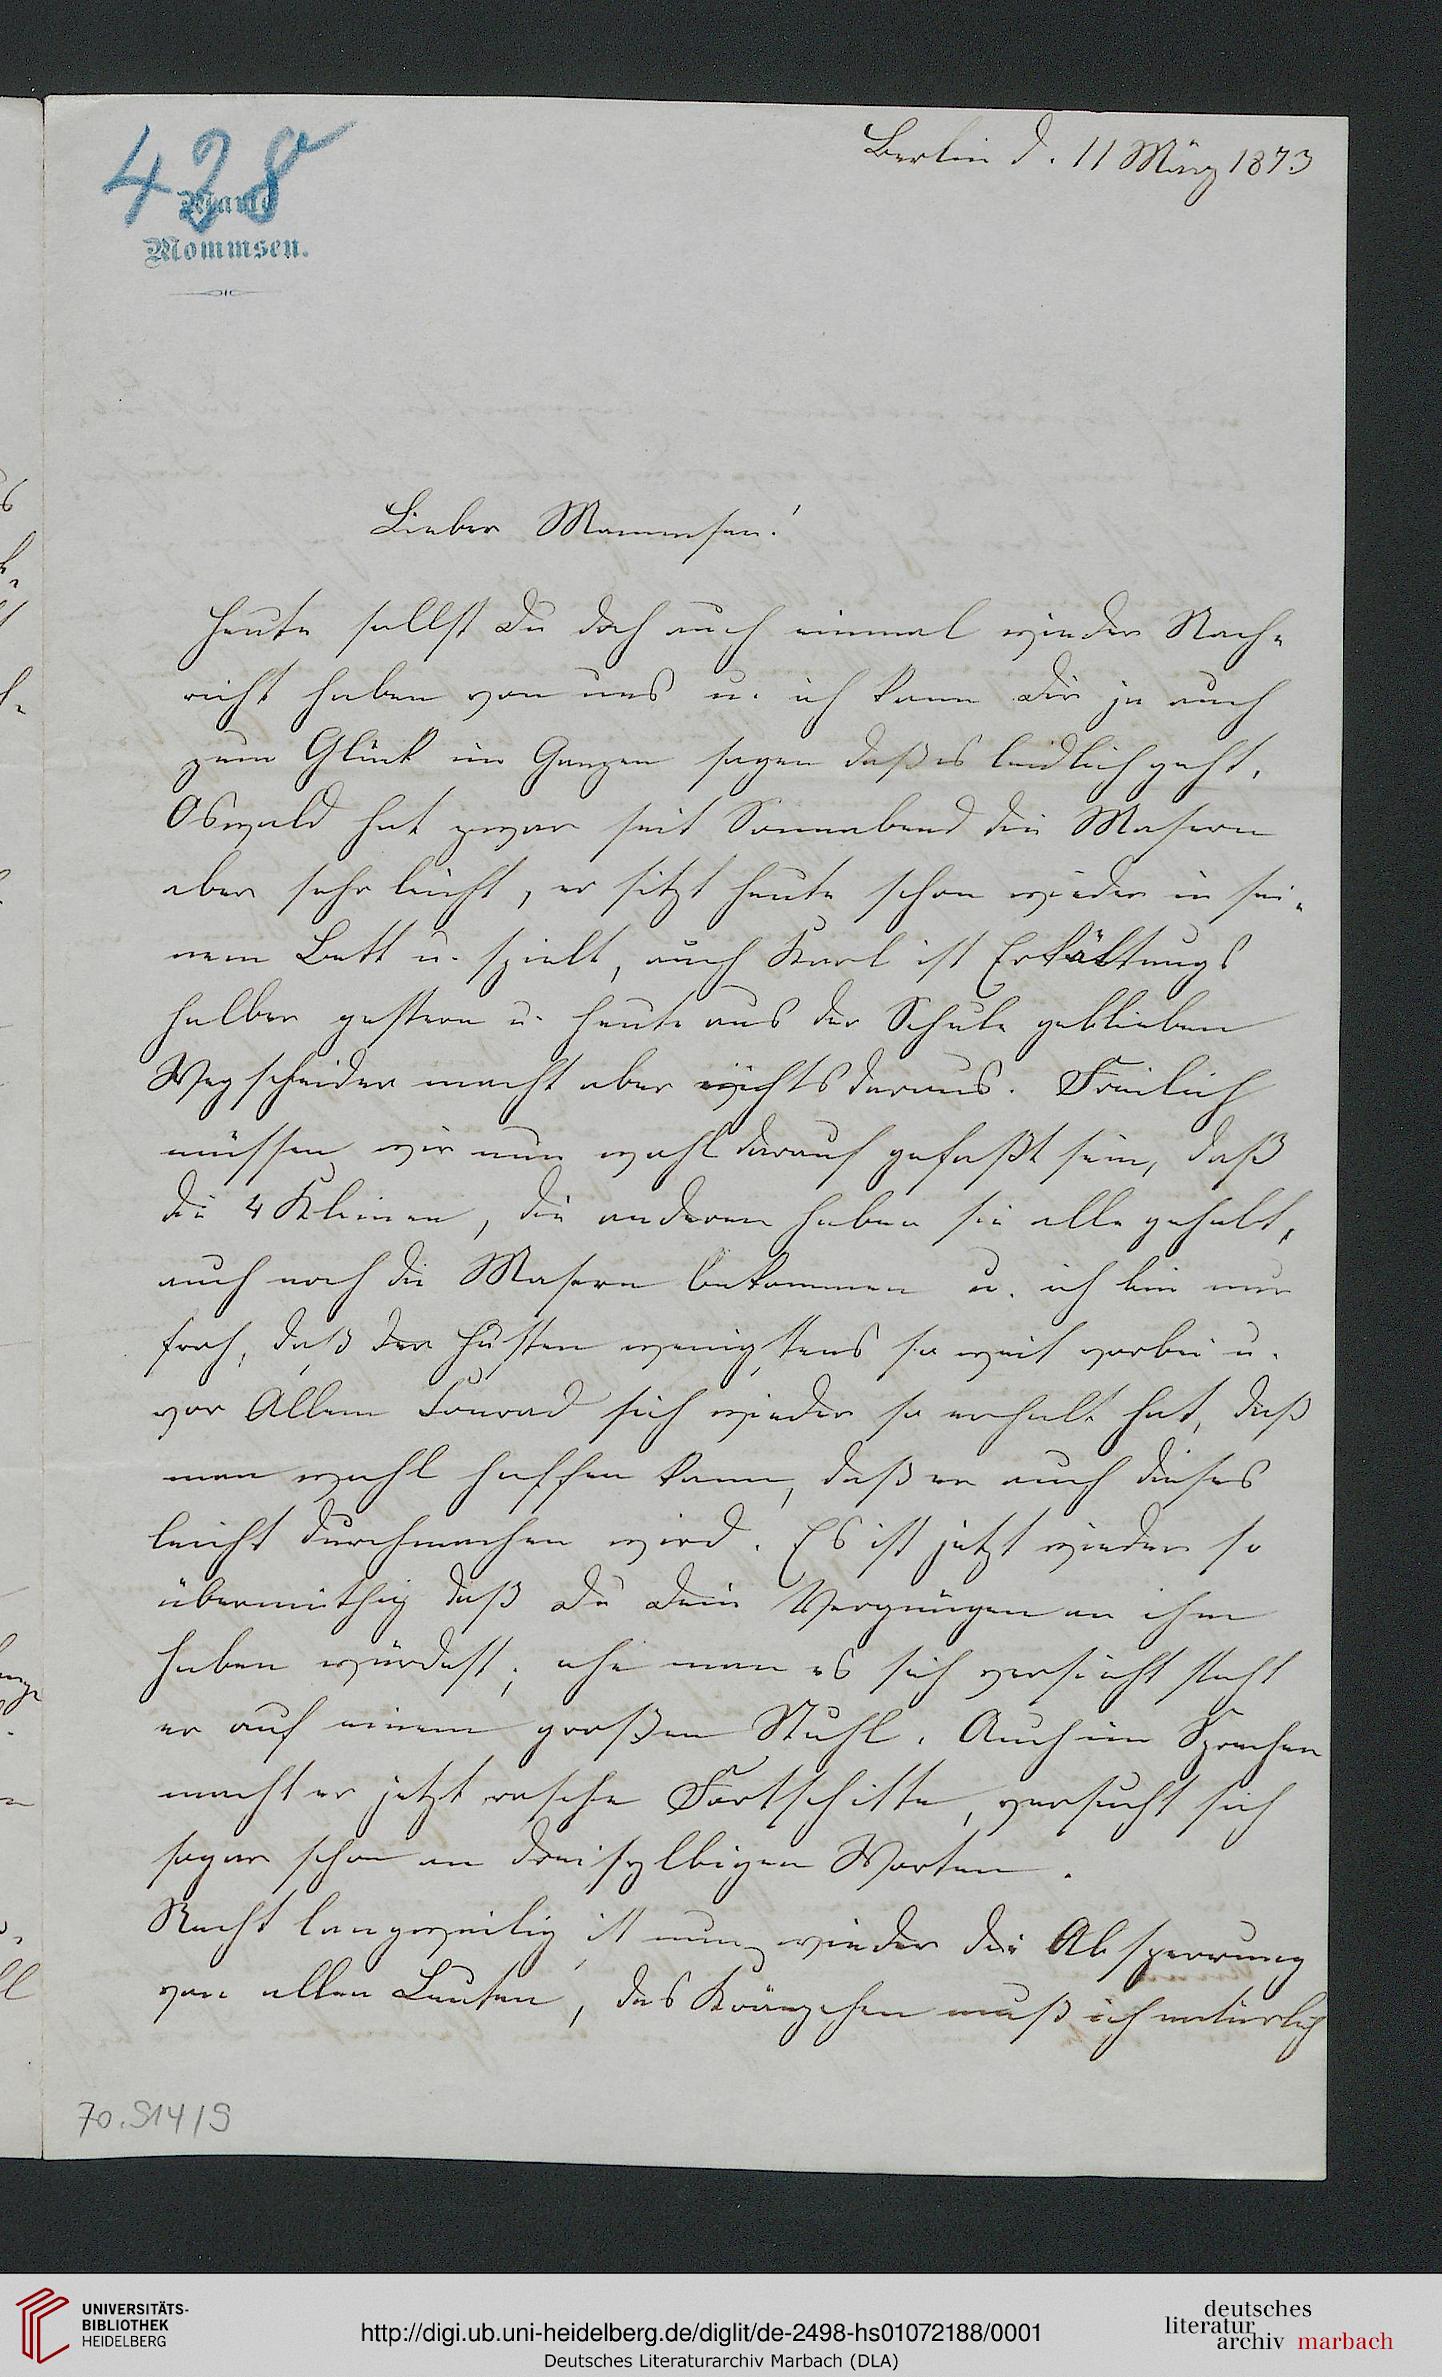 428
Berlin d. 11 März 1873
Marie
Mommsen.
Lieber Mommsen!
Heute sollst Du doch auch einmal wieder Nach-
richt haben von uns u. ich kann Dir ja auch
zum Glück im Ganzen sagen daß es leidlich geht.
Oswald hat zwar seit Sonnabend die Masern
aber sehr leicht, er sitzt heute schon wieder in sei-
nem Bett u. spielt, auch Karl ist Erkältungs
halber gestern u. heute aus der Schule geblieben
Wegscheider macht aber nichts daraus. Freilich
müssen wir nun wohl darauf gefaßt sein, daß
die 4 Kleinen, die anderen haben sie alle gehabt,
auch noch die Masern bekommen u. ich bin nur
froh, daß der Husten wenigstens so weit vorbei u.
vor Allem Conrad sich wieder so erholt hat, daß
man wohl hoffen kann, daß er auch dieses
leicht durchmachen wird. Es ist jetzt wieder so
übermüthig daß Du Dein Vergnügen an ihm
haben würdest; ehe man es sich versieht steht
er auf einem großen Stuhl. Auch im Sprechen
macht er jetzt rasche Fortschitte, versucht sich
sogar schon an dreisylbigen Worten.
Recht langweilig ist nun wieder die Absperrung
von allen Leuten, das Kränzchen muß ich natürlich
70.514/9
UNIVERSITÄTS-
BIBLIOTHEK
HEIDELBERG
http://digi.ub.uni-heidelberg.de/diglit/de-2498-hs01072188/0001
Deutsches Literaturarchiv Marbach (DLA)
deutsches
literatur
archiv marbach